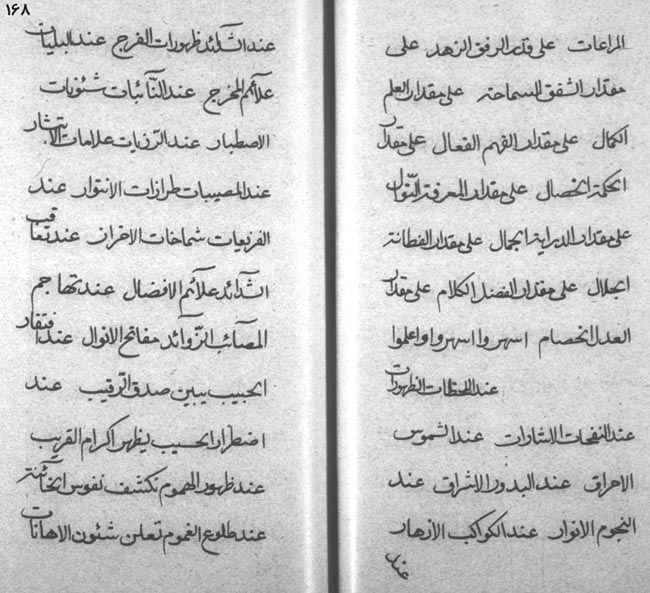 المراعات على قدر الرفق الزهد على
مقدار الشفق السماحة على مقدار العلم
الكمال على مقدار الفهم الفعال على مقدار
الحكمة الخصال على مقدار المعرفة النوال
على مقدار الدراية الجمال على مقدار الفطانة
الجلال على مقدار الفضل الكلام على مقدار
العدل الخصام اسهروا اسهروا واعلموا
عند اللحظات الظهورات
عند النفحات الاشارات عند الشموس
الاحراق عند البدور الاشراق عند
النجوم الانوار عند الكواكب الازهار
عند
١٦٨
عند الشدائد ظهورات الفرج عند البليات
علائم المخرج عند النائبات شئونات
الاصطبار عند الرزيات علامات الانتشار
عند المصيبات طرازات الانتوار عند
الفزيعات شماخات الاخزان عند تعاقب
الشدائد علائم الافضال عند تهاجم
المصائب الزوائد مفاتح الانوال عند افتقار
الحبيب يبين صدق الرقيب عند
اضطرار الحسيب يظهر اكرام القريب
عند ظهور الهموم تكشف نفوس الخائنة
عند طلوع الغموم تعلن شئون الاهانات